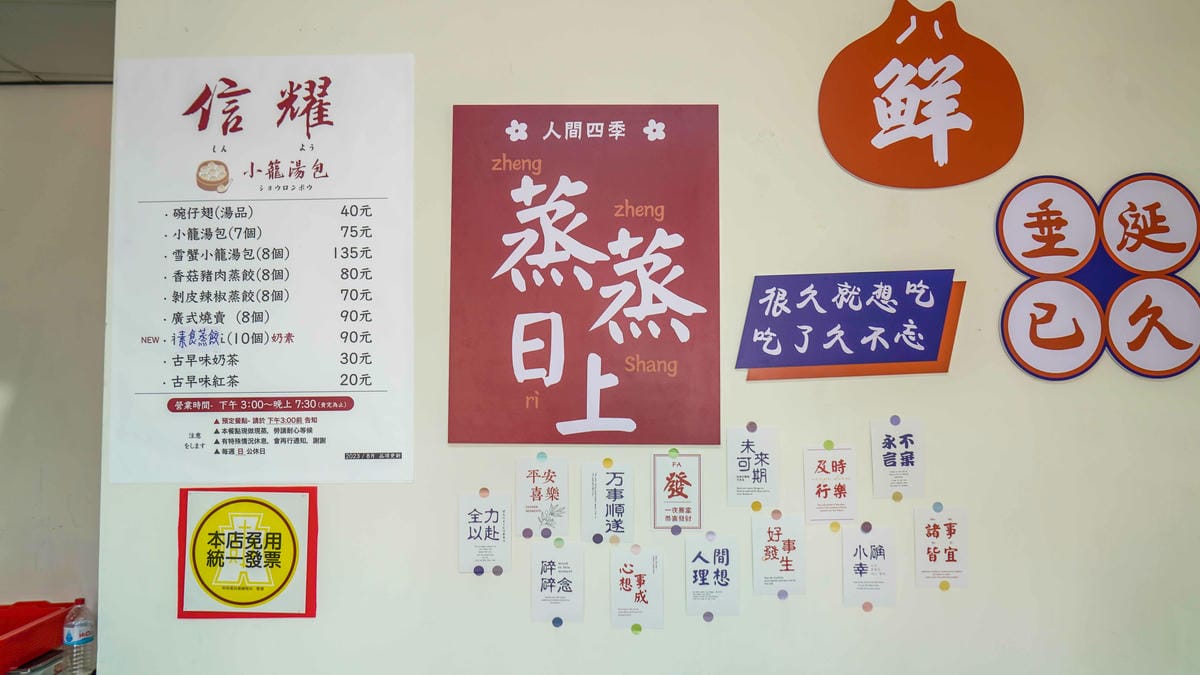 信耀
しん よう
小籠湯包
ショウロンポウ
·碗仔翅(湯品) 40元
·小籠湯包(7個) 75元
·雪蟹小籠湯包(8個) 135元
·香菇豬肉蒸餃(8個) 80元
·剝皮辣椒蒸餃(8個) 70元
·廣式燒賣 (8個) 90元
NEW·素食蒸餃(10個)奶素 90元
·古早味奶茶 30元
·古早味紅茶 20元
營業時間- 下午 3:00~晚上 7:30(售完為止)
注意をします
▲預定餐點-請於 下午3:00前 告知
▲本餐點現做現蒸,勞請耐心等候
▲有特殊情況休息,會再行通知,謝謝
▲每週 日 公休日
2023 / 8月 品項更新
本店免用
統一發票
人間四季
zheng
蒸
zheng
蒸
日
rì
Shang
上
鮮
很久就想吃
吃了久不忘
垂涎
已久
全力
以赴
平安
喜樂
万事
順遂
FA
發
一夜暴富
恭喜發財
未來
可期
及時
行樂
永不
言棄
碎
碎念
心想
事成
人間
理想
好事
發生
小確
幸
諸事
皆宜